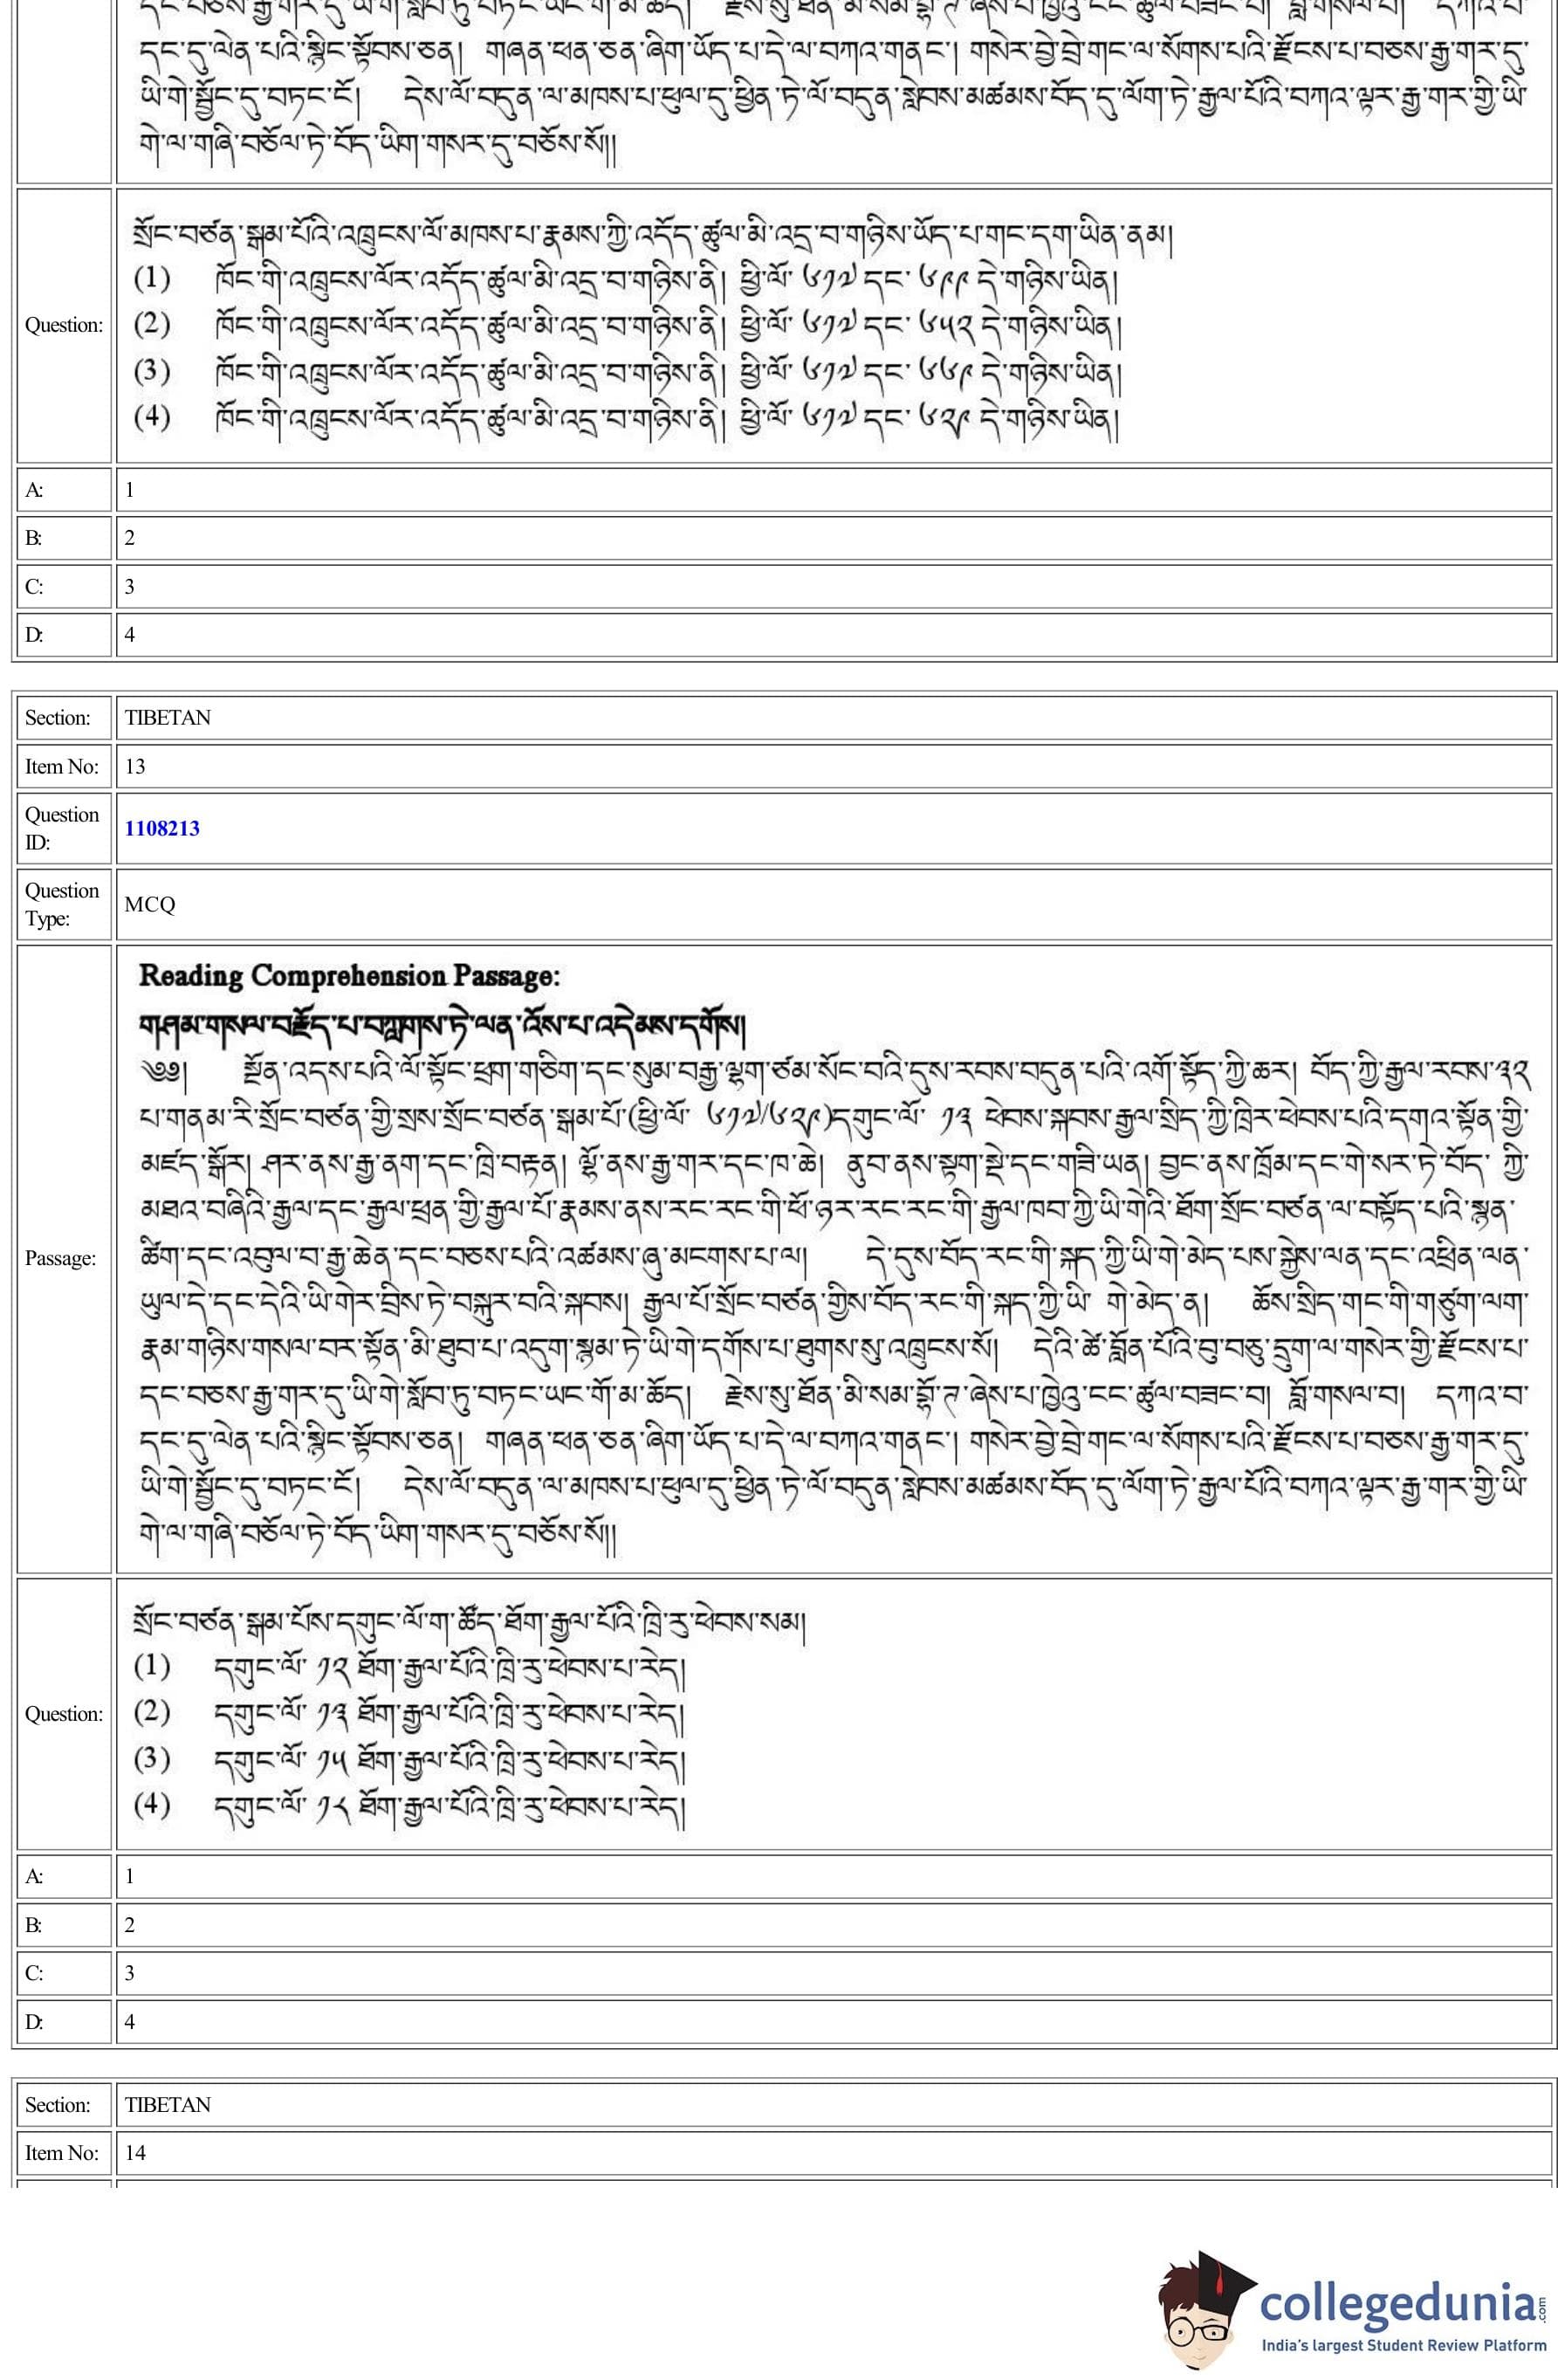 དང་དུ་ལེན་པའི་སྙིང་སྟོབས་ཅན། གཞན་ཕན་ཅན་ཞིག་ཡོད་པ་དེ་ལ་བཀའ་གནང་། གསེར་བྲེ་བྲེ་གང་ལ་སོགས་པའི་རྫོངས་པ་བཅས་རྒྱ་གར་དུ་
ཡི་གེ་སྦྱོང་དུ་བཏང་ངོ། དེས་ལོ་བདུན་ལ་མཁས་པ་ཕུལ་དུ་ཕྱིན་ཏེ་ལོ་བདུན་སླེབས་མཚམས་བོད་དུ་ལོག་ཏེ་རྒྱལ་པོའི་བཀའ་ལྟར་རྒྱ་གར་གྱི་ཡི་
གེ་ལ་གཞི་བཅོལ་ཏེ་བོད་ཡིག་གསར་དུ་བཅོས་སོ།།
Question:
སྲོང་བཙན་སྒམ་པོའི་འཁྲུངས་ལོ་མཁས་པ་རྣམས་ཀྱི་འདོད་ཚུལ་མི་འདྲ་བ་གཉིས་ཡོད་པ་གང་དག་ཡིན་ནམ།
(1) ཁོང་གི་འཁྲུངས་ལོར་འདོད་ཚུལ་མི་འདྲ་བ་གཉིས་ནི། ཕྱི་ལོ་ ༦༡༧ དང་ ༦༩༩ དེ་གཉིས་ཡིན།
(2) ཁོང་གི་འཁྲུངས་ལོར་འདོད་ཚུལ་མི་འདྲ་བ་གཉིས་ནི། ཕྱི་ལོ་ ༦༡༧ དང་ ༦༥༢ དེ་གཉིས་ཡིན།
(3) ཁོང་གི་འཁྲུངས་ལོར་འདོད་ཚུལ་མི་འདྲ་བ་གཉིས་ནི། ཕྱི་ལོ་ ༦༡༧ དང་ ༦༦༩ དེ་གཉིས་ཡིན།
(4) ཁོང་གི་འཁྲུངས་ལོར་འདོད་ཚུལ་མི་འདྲ་བ་གཉིས་ནི། ཕྱི་ལོ་ ༦༡༧ དང་ ༦༢༩ དེ་གཉིས་ཡིན།
A: 1
B: 2
C: 3
D: 4
Section: TIBETAN
Item No: 13
Question ID: 1108213
Question Type: MCQ
Passage:
Reading Comprehension Passage:
གཤམ་གསལ་བརྗོད་པ་བཀླགས་ཏེ་ལན་འོས་པ་འདེམས་དགོས།
༄༅། སྔོན་འདས་པའི་ལོ་སྟོང་ཕྲག་གཅིག་དང་སུམ་བརྒྱ་ལྷག་ཙམ་སོང་བའི་དུས་རབས་བདུན་པའི་འགོ་སྟོད་ཀྱི་ཆར། བོད་ཀྱི་རྒྱལ་རབས་༣༢
པ་གནམ་རི་སྲོང་བཙན་གྱི་སྲས་སྲོང་བཙན་སྒམ་པོ་(ཕྱི་ལོ་ ༦༡༧/༦༢༩)དགུང་ལོ་ ༡༣ ཕེབས་སྐབས་རྒྱལ་སྲིད་ཀྱི་ཁྲིར་ཕེབས་པའི་དགའ་སྟོན་གྱི་
མཛད་སྒོར། ཤར་ནས་རྒྱ་ནག་དང་ཁྲི་བརྟན། ལྷོ་ནས་རྒྱ་གར་དང་ཁ་ཆེ། ནུབ་ནས་སྟག་སྡེ་དང་གཟི་ཡན། བྱང་ནས་ཁྲོམ་དང་གེ་སར་ཏེ་བོད་ ཀྱི་
མཐའ་བཞིའི་རྒྱལ་དང་རྒྱལ་ཕྲན་གྱི་རྒྱལ་པོ་རྣམས་ནས་རང་རང་གི་ཕོ་ཉར་རང་རང་གི་རྒྱལ་ཁབ་ཀྱི་ཡི་གེའི་ཐོག་སྲོང་བཙན་ལ་བསྟོད་པའི་སྙན་
ཚིག་དང་འབུལ་བ་རྒྱ་ཆེན་དང་བཅས་པའི་འཚམས་ཞུ་མངགས་པ་ལ། དེ་དུས་བོད་རང་གི་སྐད་ཀྱི་ཡི་གེ་མེད་པས་སྐྱེས་ལན་དང་འཕྲིན་ལན་
ཡུལ་དེ་དང་དེའི་ཡི་གེར་བྲིས་ཏེ་བསྐུར་བའི་སྐབས། རྒྱལ་པོ་སྲོང་བཙན་གྱིས་བོད་རང་གི་སྐད་ཀྱི་ཡི་ གེ་མེད་ན། ཆོས་སྲིད་གང་གི་གཙུག་ལག་
རྣམ་གཉིས་གསལ་བར་སྟོན་མི་ཐུབ་པ་འདུག་སྙམ་ཏེ་ཡི་གེ་དགོས་པ་ཐུགས་སུ་འཁྲུངས་སོ། དེའི་ཚེ་བློན་པོའི་བུ་བཅུ་དྲུག་ལ་གསེར་གྱི་རྫོངས་པ་
དང་བཅས་རྒྱ་གར་དུ་ཡི་གེ་སློབ་ཏུ་བཏང་ཡང་གོ་མ་ཆོད། རྗེས་སུ་ཐོན་མི་སམ་བྷོ་ཊ་ཞེས་པ་ཁྱེའུ་ངང་ཚུལ་བཟང་བ། བློ་གསལ་བ། དཀའ་བ་
དང་དུ་ལེན་པའི་སྙིང་སྟོབས་ཅན། གཞན་ཕན་ཅན་ཞིག་ཡོད་པ་དེ་ལ་བཀའ་གནང་། གསེར་བྲེ་བྲེ་གང་ལ་སོགས་པའི་རྫོངས་པ་བཅས་རྒྱ་གར་དུ་
ཡི་གེ་སྦྱོང་དུ་བཏང་ངོ། དེས་ལོ་བདུན་ལ་མཁས་པ་ཕུལ་དུ་ཕྱིན་ཏེ་ལོ་བདུན་སླེབས་མཚམས་བོད་དུ་ལོག་ཏེ་རྒྱལ་པོའི་བཀའ་ལྟར་རྒྱ་གར་གྱི་ཡི་
གེ་ལ་གཞི་བཅོལ་ཏེ་བོད་ཡིག་གསར་དུ་བཅོས་སོ།།
Question:
སྲོང་བཙན་སྒམ་པོས་དགུང་ལོ་ག་ཚོད་ཐོག་རྒྱལ་པོའི་ཁྲི་རུ་ཕེབས་སམ།
(1) དགུང་ལོ་ ༡༢ ཐོག་རྒྱལ་པོའི་ཁྲི་རུ་ཕེབས་པ་རེད།
(2) དགུང་ལོ་ ༡༣ ཐོག་རྒྱལ་པོའི་ཁྲི་རུ་ཕེབས་པ་རེད།
(3) དགུང་ལོ་ ༡༥ ཐོག་རྒྱལ་པོའི་ཁྲི་རུ་ཕེབས་པ་རེད།
(4) དགུང་ལོ་ ༡༨ ཐོག་རྒྱལ་པོའི་ཁྲི་རུ་ཕེབས་པ་རེད།
A: 1
B: 2
C: 3
D: 4
Section: TIBETAN
Item No: 14
collegedunia.com
India's largest Student Review Platform